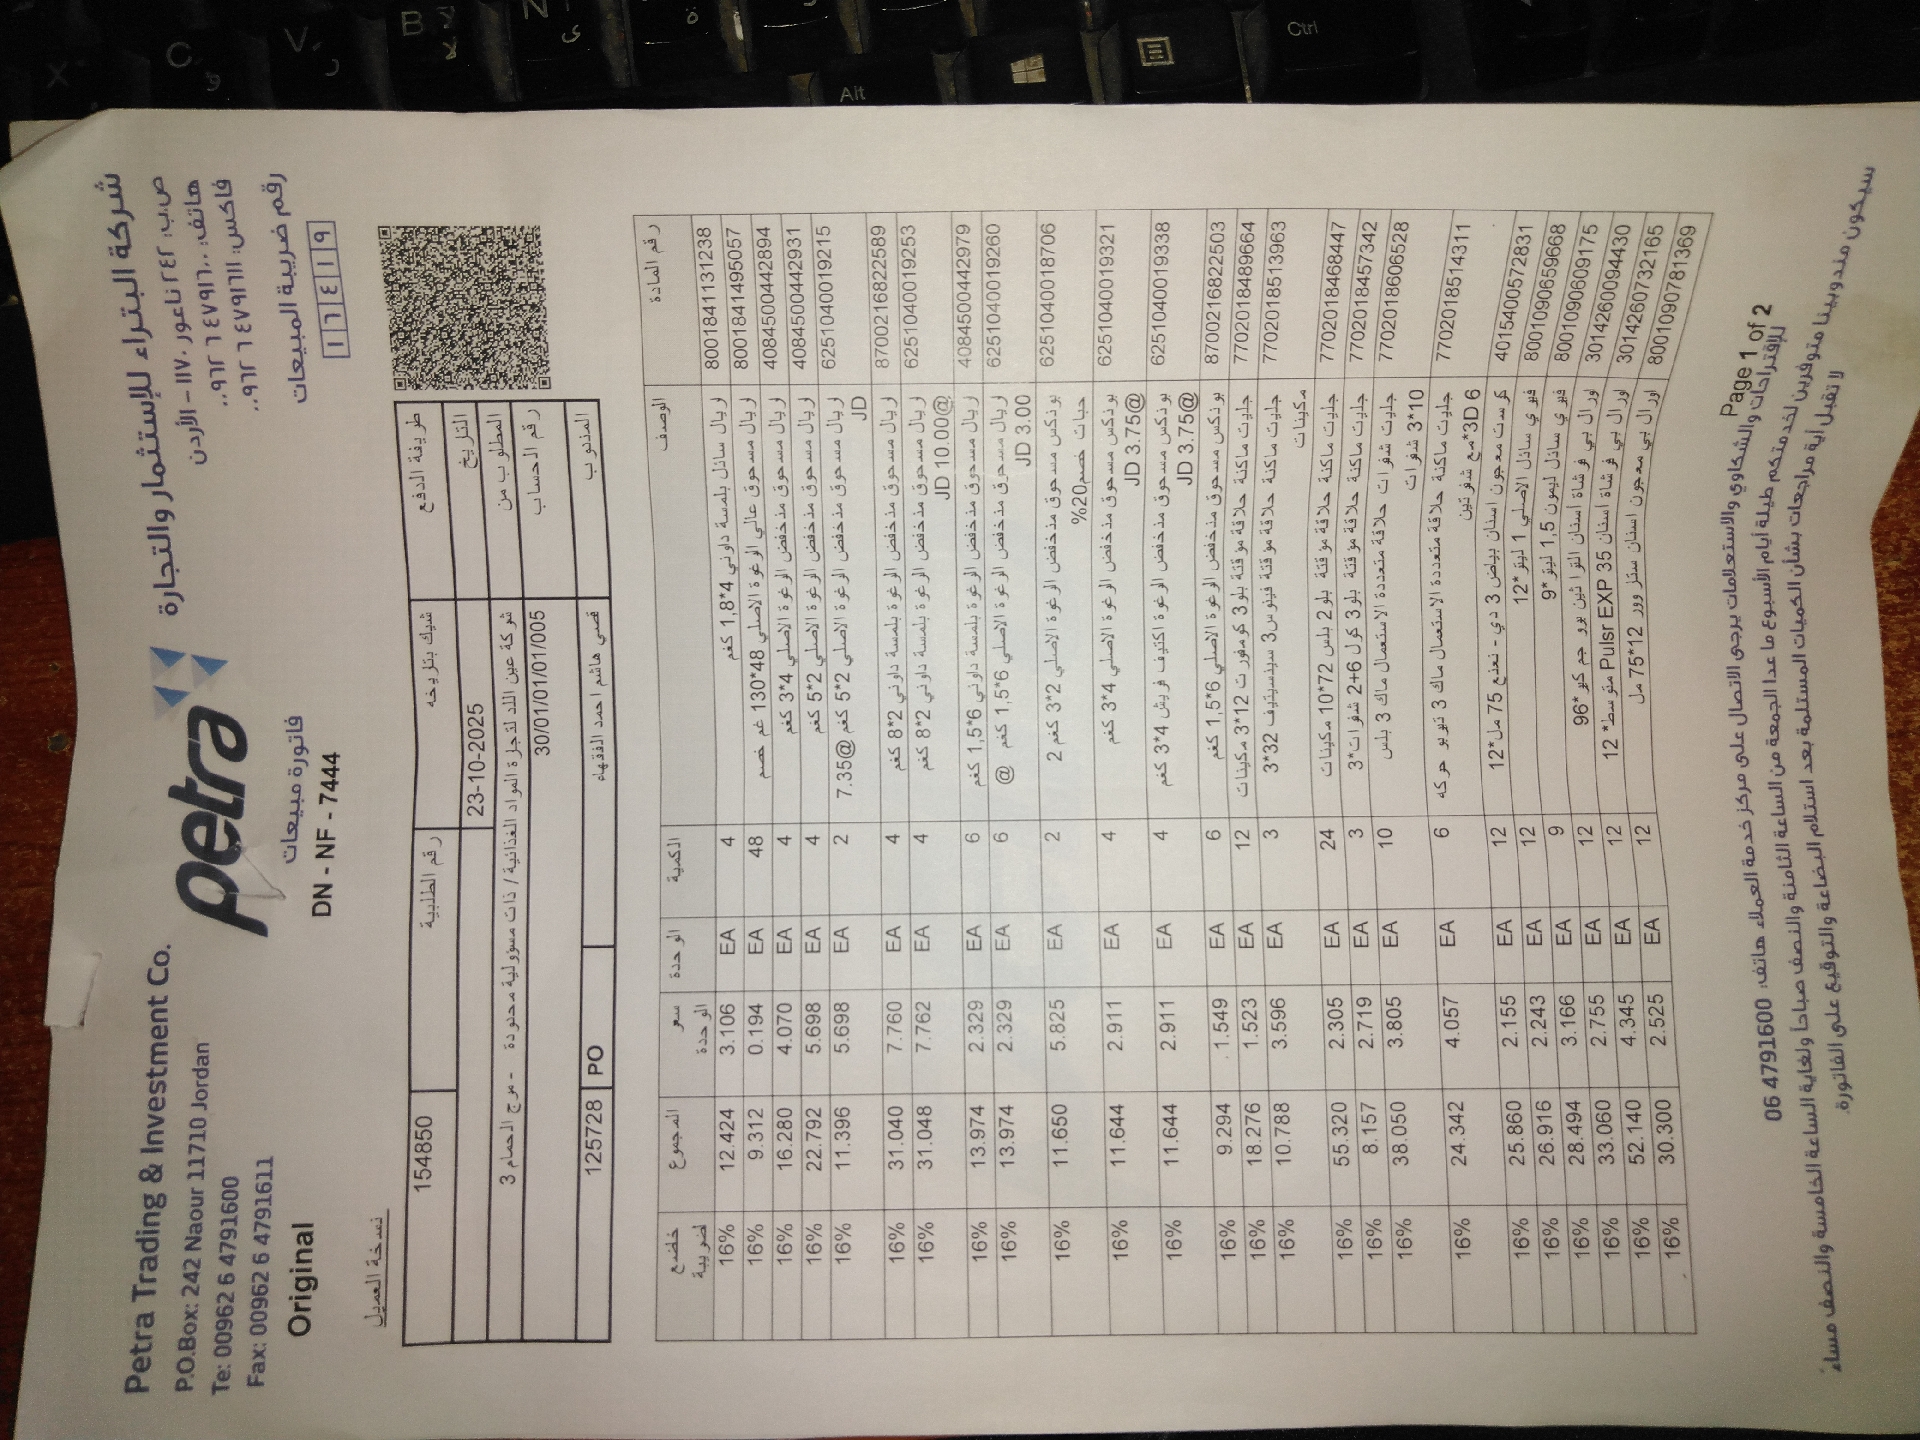 Petra Trading & Investment Co.
P.O.Box: 242 Naour 11710 Jordan
Te: 00962 6 4791600
Fax: 00962 6 4791611
petra
شركة البتراء للإستثمار والتجارة
ص.ب: ٢٤٢ ناعور ١١٧١٠ – الأردن
هاتف: ٤٧٩١٦٠٠ ٦ ٠٠٩٦٢
فاكس: ٤٧٩١٦١١ ٦ ٠٠٩٦٢
رقم ضريبة المبيعات
١ ٦ ٤ ١ ٩
Original
فاتورة مبيعات
DN - NF - 7444
نسخة العميل
طريقة الدفع شيك بتاريخه رقم الطلبية 154850
التاريخ 23-10-2025
المطلوب من شركة عين اللد لتجارة المواد الغذائية / ذات مسؤولية محدودة - مرج الحمام 3
رقم الحساب 30/01/01/01/005
المندوب قصي هاشم احمد الفقهاء PO 125728
رقم المادة الوصف الكمية الوحدة سعر الوحدة المجموع خاضع لضريبة
8001841131238 اريال سائل بلمسة داوني 4*1,8 كغم 4 EA 3.106 12.424 16%
8001841495057 اريال مسحوق عالي الرغوة الاصلي 48*130 غم خصم 48 EA 0.194 9.312 16%
4084500442894 اريال مسحوق منخفض الرغوة الاصلي 4*3 كغم 4 EA 4.070 16.280 16%
4084500442931 اريال مسحوق منخفض الرغوة الاصلي 2*5 كغم 4 EA 5.698 22.792 16%
6251040019215 اريال مسحوق منخفض الرغوة الاصلي 2*5 كغم @7.35 JD 2 EA 5.698 11.396 16%
8700216822589 اريال مسحوق منخفض الرغوة بلمسة داوني 2*8 كغم 4 EA 7.760 31.040 16%
6251040019253 اريال مسحوق منخفض الرغوة بلمسة داوني 2*8 كغم @10.00 JD 4 EA 7.762 31.048 16%
4084500442979 اريال مسحوق منخفض الرغوة بلمسة داوني 6*1,5 كغم 6 EA 2.329 13.974 16%
6251040019260 اريال مسحوق منخفض الرغوة الاصلي 6*1,5 كغم @ 3.00 JD 6 EA 2.329 13.974 16%
6251040018706 بوندكس مسحوق منخفض الرغوة الاصلي 2*3 كغم 2 حبات خصم20% 2 EA 5.825 11.650 16%
6251040019321 بوندكس مسحوق منخفض الرغوة الاصلي 4*3 كغم @3.75 JD 4 EA 2.911 11.644 16%
6251040019338 بوندكس مسحوق منخفض الرغوة اكتيف فريش 4*3 كغم @3.75 JD 4 EA 2.911 11.644 16%
8700216822503 بوندكس مسحوق منخفض الرغوة الاصلي 6*1,5 كغم 6 EA 1.549 9.294 16%
7702018489664 جليت ماكنة حلاقة مؤقتة بلو3 كومفورت 12*3 مكينات 12 EA 1.523 18.276 16%
7702018513963 جليت ماكنة حلاقة مؤقتة فينوس3 سينسيتيف 32*3 مكينات 3 EA 3.596 10.788 16%
7702018468447 جليت ماكنة حلاقة مؤقتة بلو2 بلس 72*10 مكينات 24 EA 2.305 55.320 16%
7702018457342 جليت ماكنة حلاقة مؤقتة بلو3 كول 6+2 شفرات*3 3 EA 2.719 8.157 16%
7702018606528 جليت شفرات حلاقة متعددة الاستعمال ماك 3 بلس 10*3 شفرات 10 EA 3.805 38.050 16%
7702018514311 جليت ماكنة حلاقة متعددة الاستعمال ماك 3 تيربو حركه 3D*مع شفرتين 6 6 EA 4.057 24.342 16%
4015400572831 كرست معجون اسنان بياض 3 دي - نعنع 75 مل*12 12 EA 2.155 25.860 16%
8001090659668 فيري سائل الاصلي 1 ليتر*12 12 EA 2.243 26.916 16%
8001090609175 فيري سائل ليمون 1,5 ليتر*9 9 EA 3.166 28.494 16%
3014260094430 اورال بي فرشاة اسنان الترا ثين برو جم كير*96 12 EA 2.755 33.060 16%
3014260732165 اورال بي فرشاة اسنان Pulsr EXP 35 متوسط* 12 12 EA 4.345 52.140 16%
8001090781369 اورال بي معجون اسنان سنتز وور 12*75 مل 12 EA 2.525 30.300 16%
Page 1 of 2
للإقتراحات والشكاوي والاستعلامات يرجى الاتصال على مركز خدمة العملاء هاتف: 06 4791600
سيكون مندوبينا متوفرين لخدمتكم طيلة ايام الأسبوع ما عدا الجمعة من الساعة الثامنة والنصف صباحاً ولغاية الساعة الخامسة والنصف مساءً
لا تقبل أية مراجعات بشأن الكميات المستلمة بعد استلام البضاعة والتوقيع على الفاتورة.
X
C
V
B
N
Alt
Ctrl